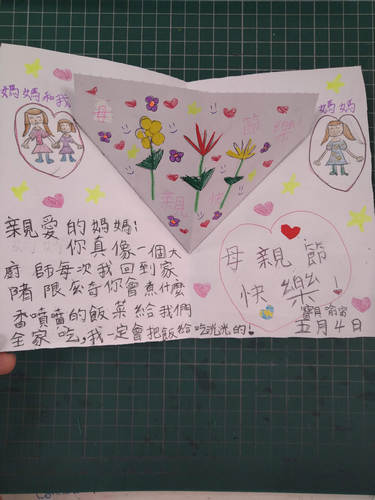 媽媽和我
母親節快樂
媽媽
親愛的媽媽:
你真像一個大
廚師每次我回到家
都很好奇你會煮什麼
香噴噴的飯菜給我們
全家吃,我一定會把飯給吃光光的!
母親節
快樂!
五月4日